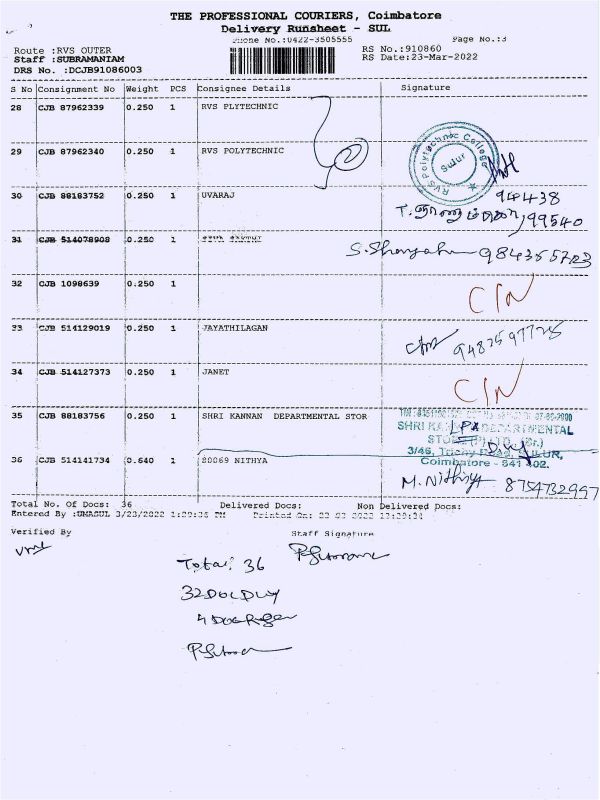 THE PROFESSIONAL COURIERS, Coimbatore
Delivery Runsheet - SUL
Phone No.:0422-3505555
Page No.:3
Route :RVS OUTER
RS No.:910860
Staff :SUBRAMANIAM
RS Date:23-Mar-2022
DRS No. :DCJB91086003
S No Consignment No Weight PCS Consignee Details Signature
28 CJB 87962339 0.250 1 RVS PLYTECHNIC
29 CJB 87962340 0.250 1 RVS POLYTECHNIC
RVS Polytechnic College
Sulur
30 CJB 88183752 0.250 1 UVARAJ
94438
99540
31 CJB 514078908 0.250 1
32 CJB 1098639 0.250 1
C/N
33 CJB 514129019 0.250 1 JAYATHILAGAN
34 CJB 514127373 0.250 1 JANET
C/N
35 CJB 88183756 0.250 1 SHRI KANNAN DEPARTMENTAL STOR
SHRI DEPARTMENTAL
3/46, Trichy Road, SULUR,
Coimbatore - 641 402.
36 CJB 514141734 0.640 1 80069 NITHYA
M. Nithiya 8754732997
Total No. Of Docs: 36 Delivered Docs: Non Delivered Docs:
Entered By :UMASUL 3/23/2022
Verified By
Staff Signature
Total: 36